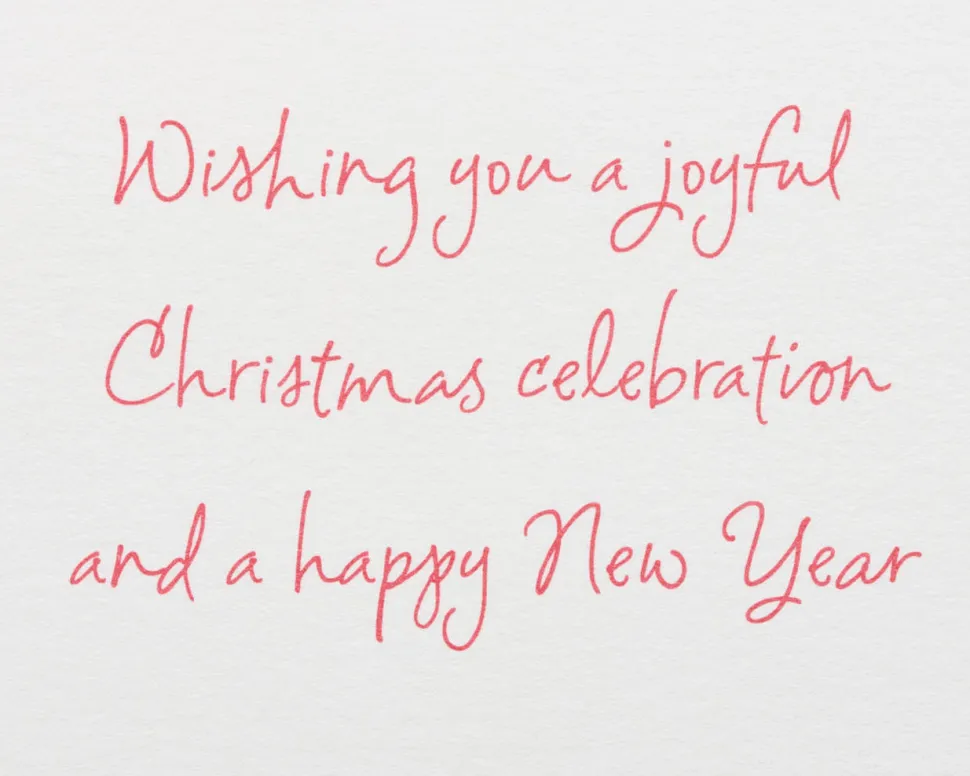 Wishing you a joyful
Christmas celebration
and a happy New Year